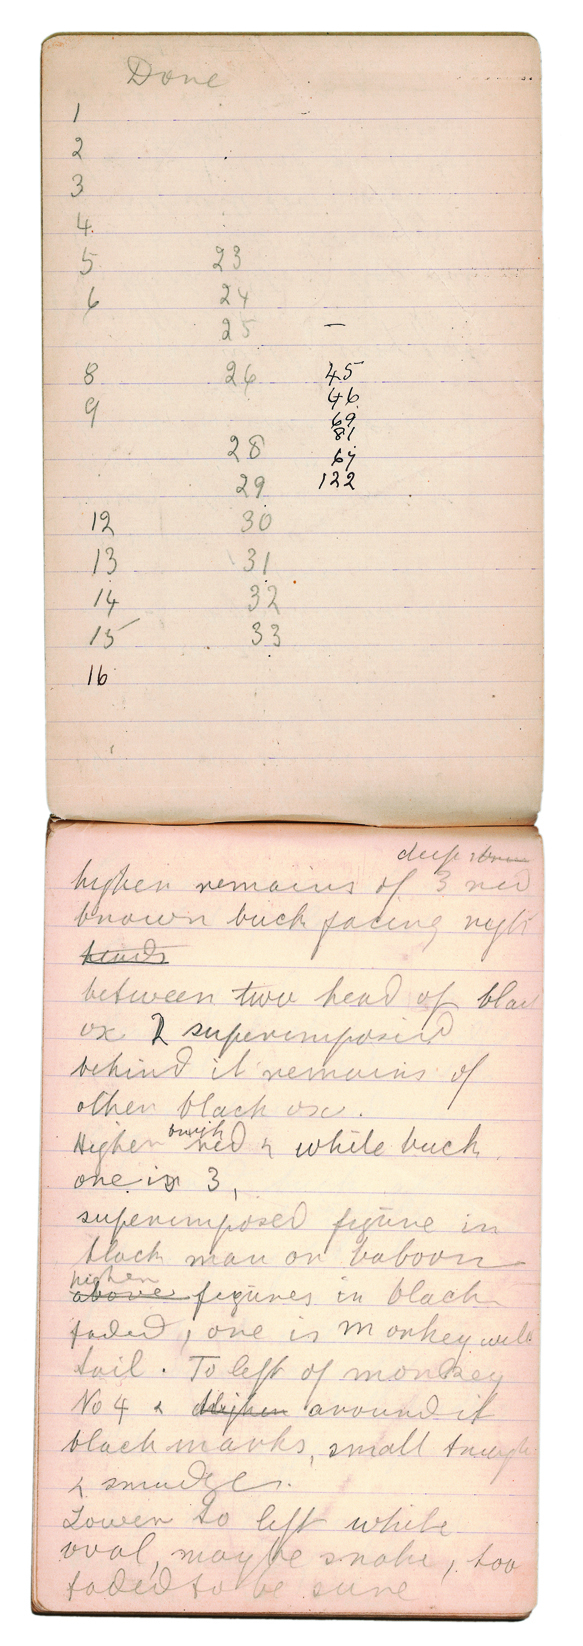 Done
1
2
3
4
5 23
6 24
25 –
8 26 45
9 46
69
81
28 67
29 122
12 30
13 31
14 32
15 33
16
deep
higher remains of 3 red
brown buck facing right
heads
between two head of blac
ox 2 superimposed
behind it remains of
other black ox.
Higher red & white buck
one is 3,
superimposed figure in
black man or baboon
higher
above figures in black
faded, one is monkey with
tail. To left of monkey
No 4 & Higher around it
black marks, small
& smudges.
Lower to left white
oval, maybe snake, too
faded to be sure